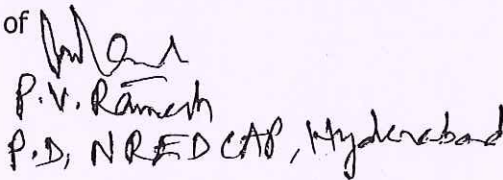 of
P.V. Ramesh
P.D, NREDCAP, Hyderabad